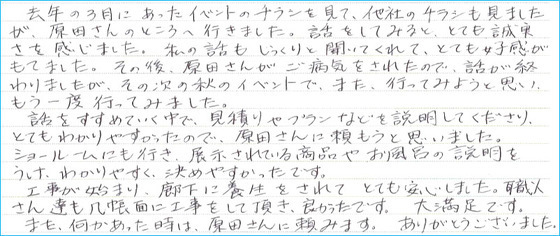 去年の3月にあったイベントのチラシを見て、他社のチラシも見ました
が、原田さんのところへ行きました。話をしてみると、とても誠実
さを感じました。私の話もじっくりと聞いてくれて、とても好感が
もてました。その後、原田さんがご病気をされたので、話が終
わりましたが、その次の秋のイベントで、また、行ってみようと思い、
もう一度行ってみました。
話をすすめていく中で、見積りやプランなどを説明してくださり、
とてもわかりやすかったので、原田さんに頼もうと思いました。
ショールームにも行き、展示されている商品やお風呂の説明を
うけ、わかりやすく、決めやすかったです。
工事が始まり、廊下に養生をされてとても安心しました。職人
さん達も几帳面に工事をして頂き、良かったです。大満足です。
また、何かあった時は、原田さんに頼みます。ありがとうございました。